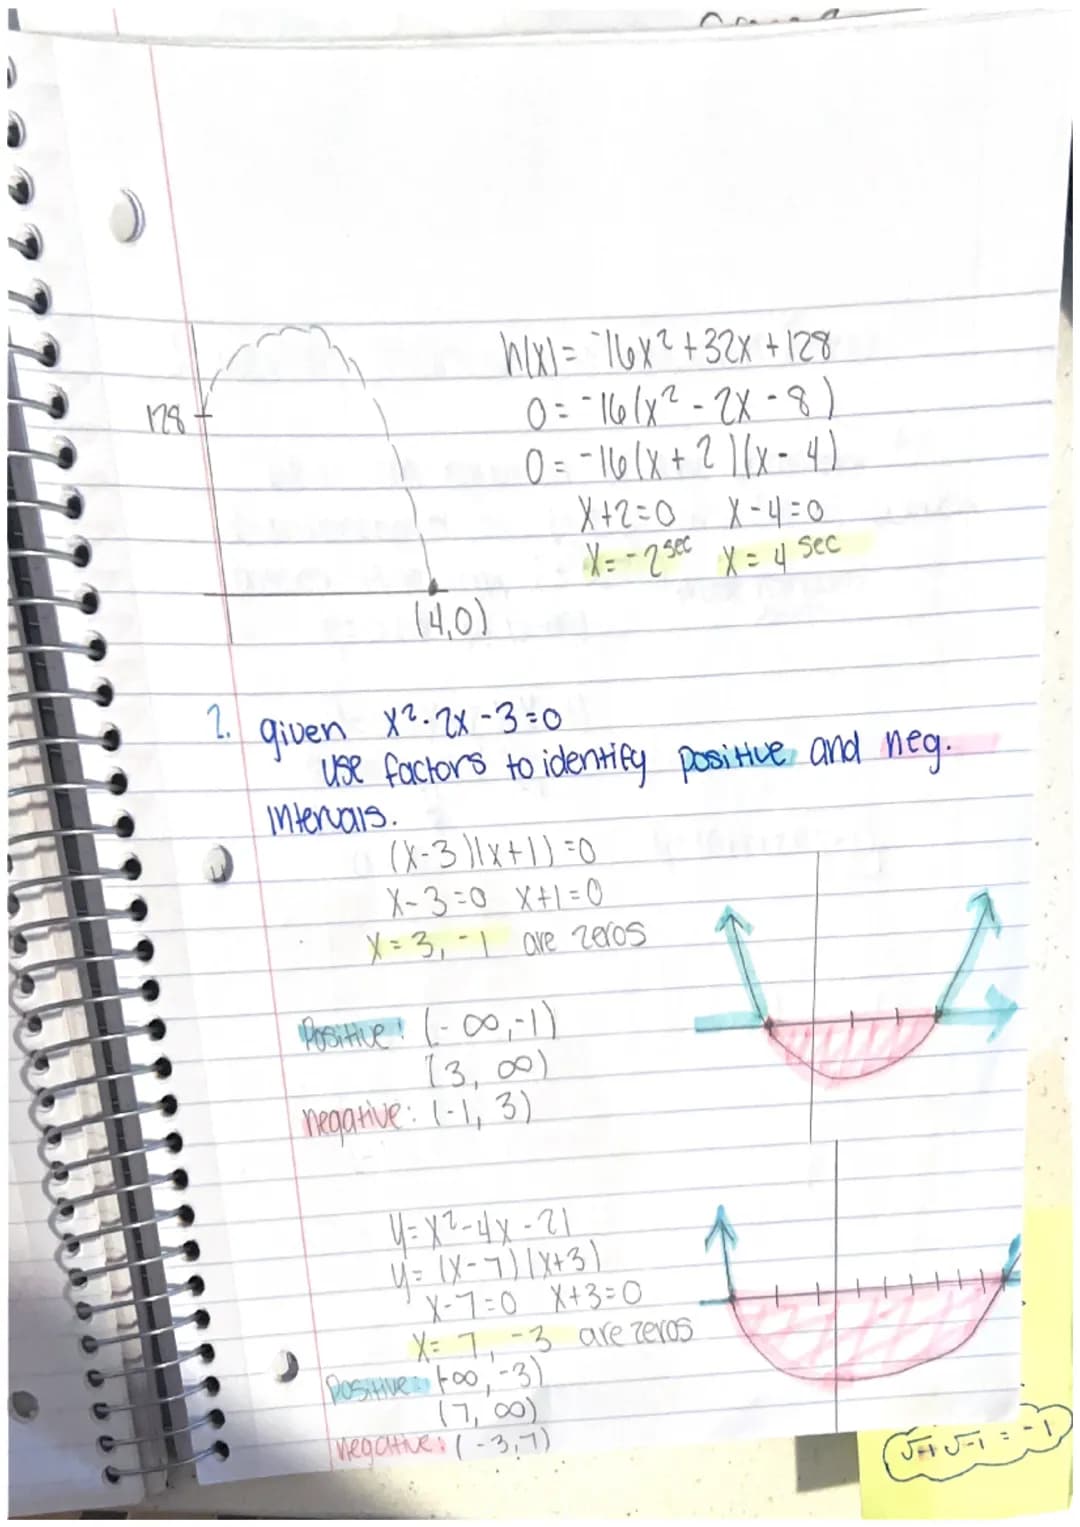 h(x) = -16x² + 32x + 128
0 = -16(x² - 2x - 8)
0 = -16(x + 2)(x - 4)
x+2=0 x-4=0
x = -2 sec x = 4 sec
128
(4,0)
2. given x² - 2x - 3 = 0
use factors to identify positive and neg.
intervals.
(x-3)(x+1) = 0
x-3=0 x+1=0
x = 3, -1 are zeros
Positive: (-∞,-1)
(3, ∞)
negative: (-1, 3)
y = x² - 4x - 21
y = (x-7)(x+3)
x-7=0 x+3=0
x = 7, -3 are zeros
positive: (-∞, -3)
(7, ∞)
negative: (-3,7)
√-1 √-1 = -1